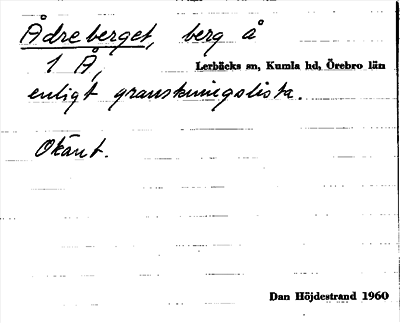 Ådreberget, berg å
1 Å, Lerbäcks sn, Kumla hd, Örebro län
enligt granskningslista.
Okänt.
Dan Höjdestrand 1960